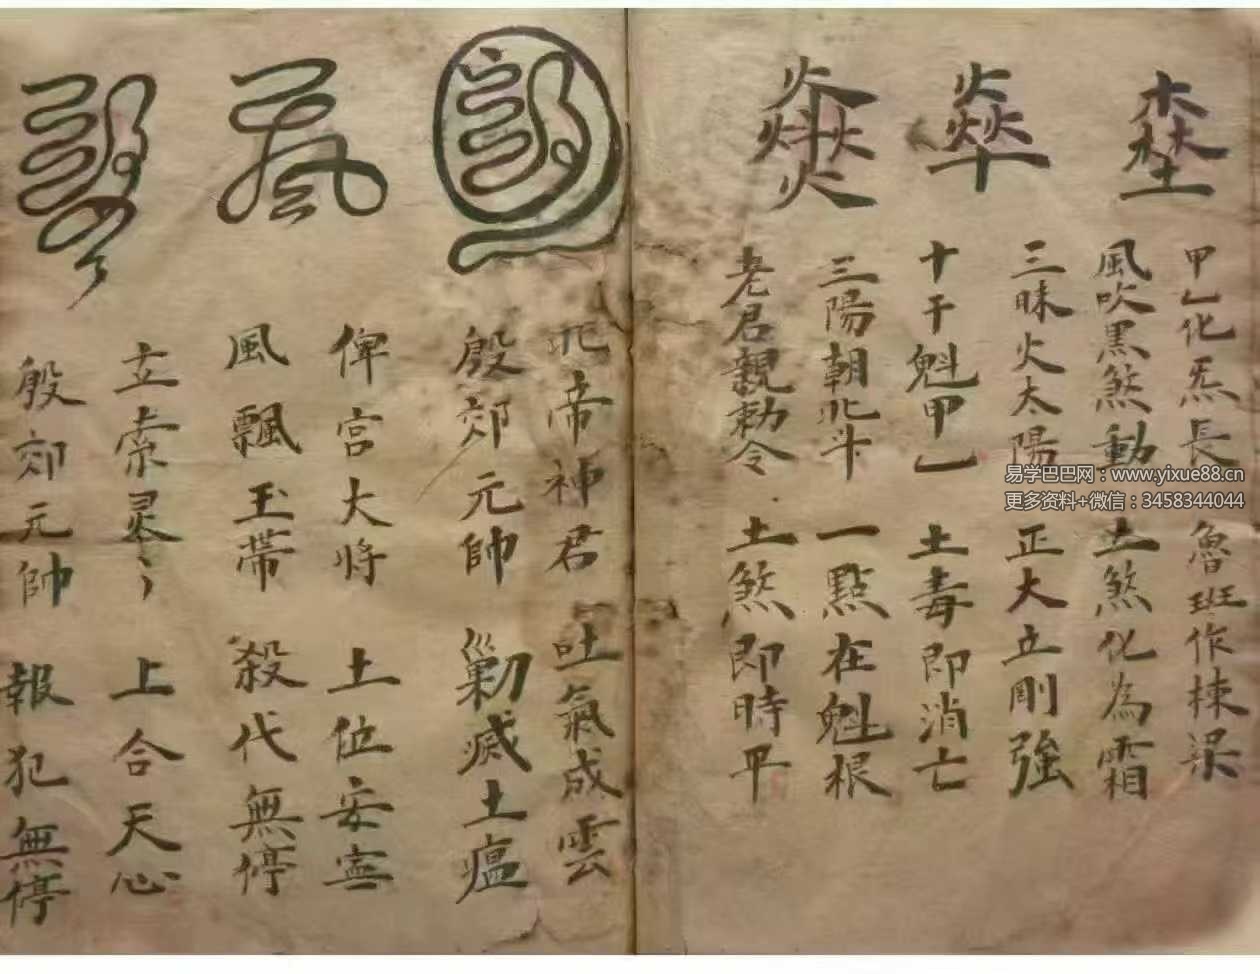 甲乙化炁長 魯班作棟梁
風吹黒煞動 土煞化為霜
三昧火太陽 正大立剛強
十干魁甲乙 土毒即消亡
三陽朝北斗 一點在魁根
老君親勅令 土煞即時平
北帝神君 吐氣成雲
殷郊元帥 剿滅土瘟
俾宮大将 土位安寧
風飄玉帶 殺代無停
立索灵〻 上合天心
殷郊元帥 報犯無停
易学巴巴网：www.yixue88.cn
更多资料+微信：3458344044